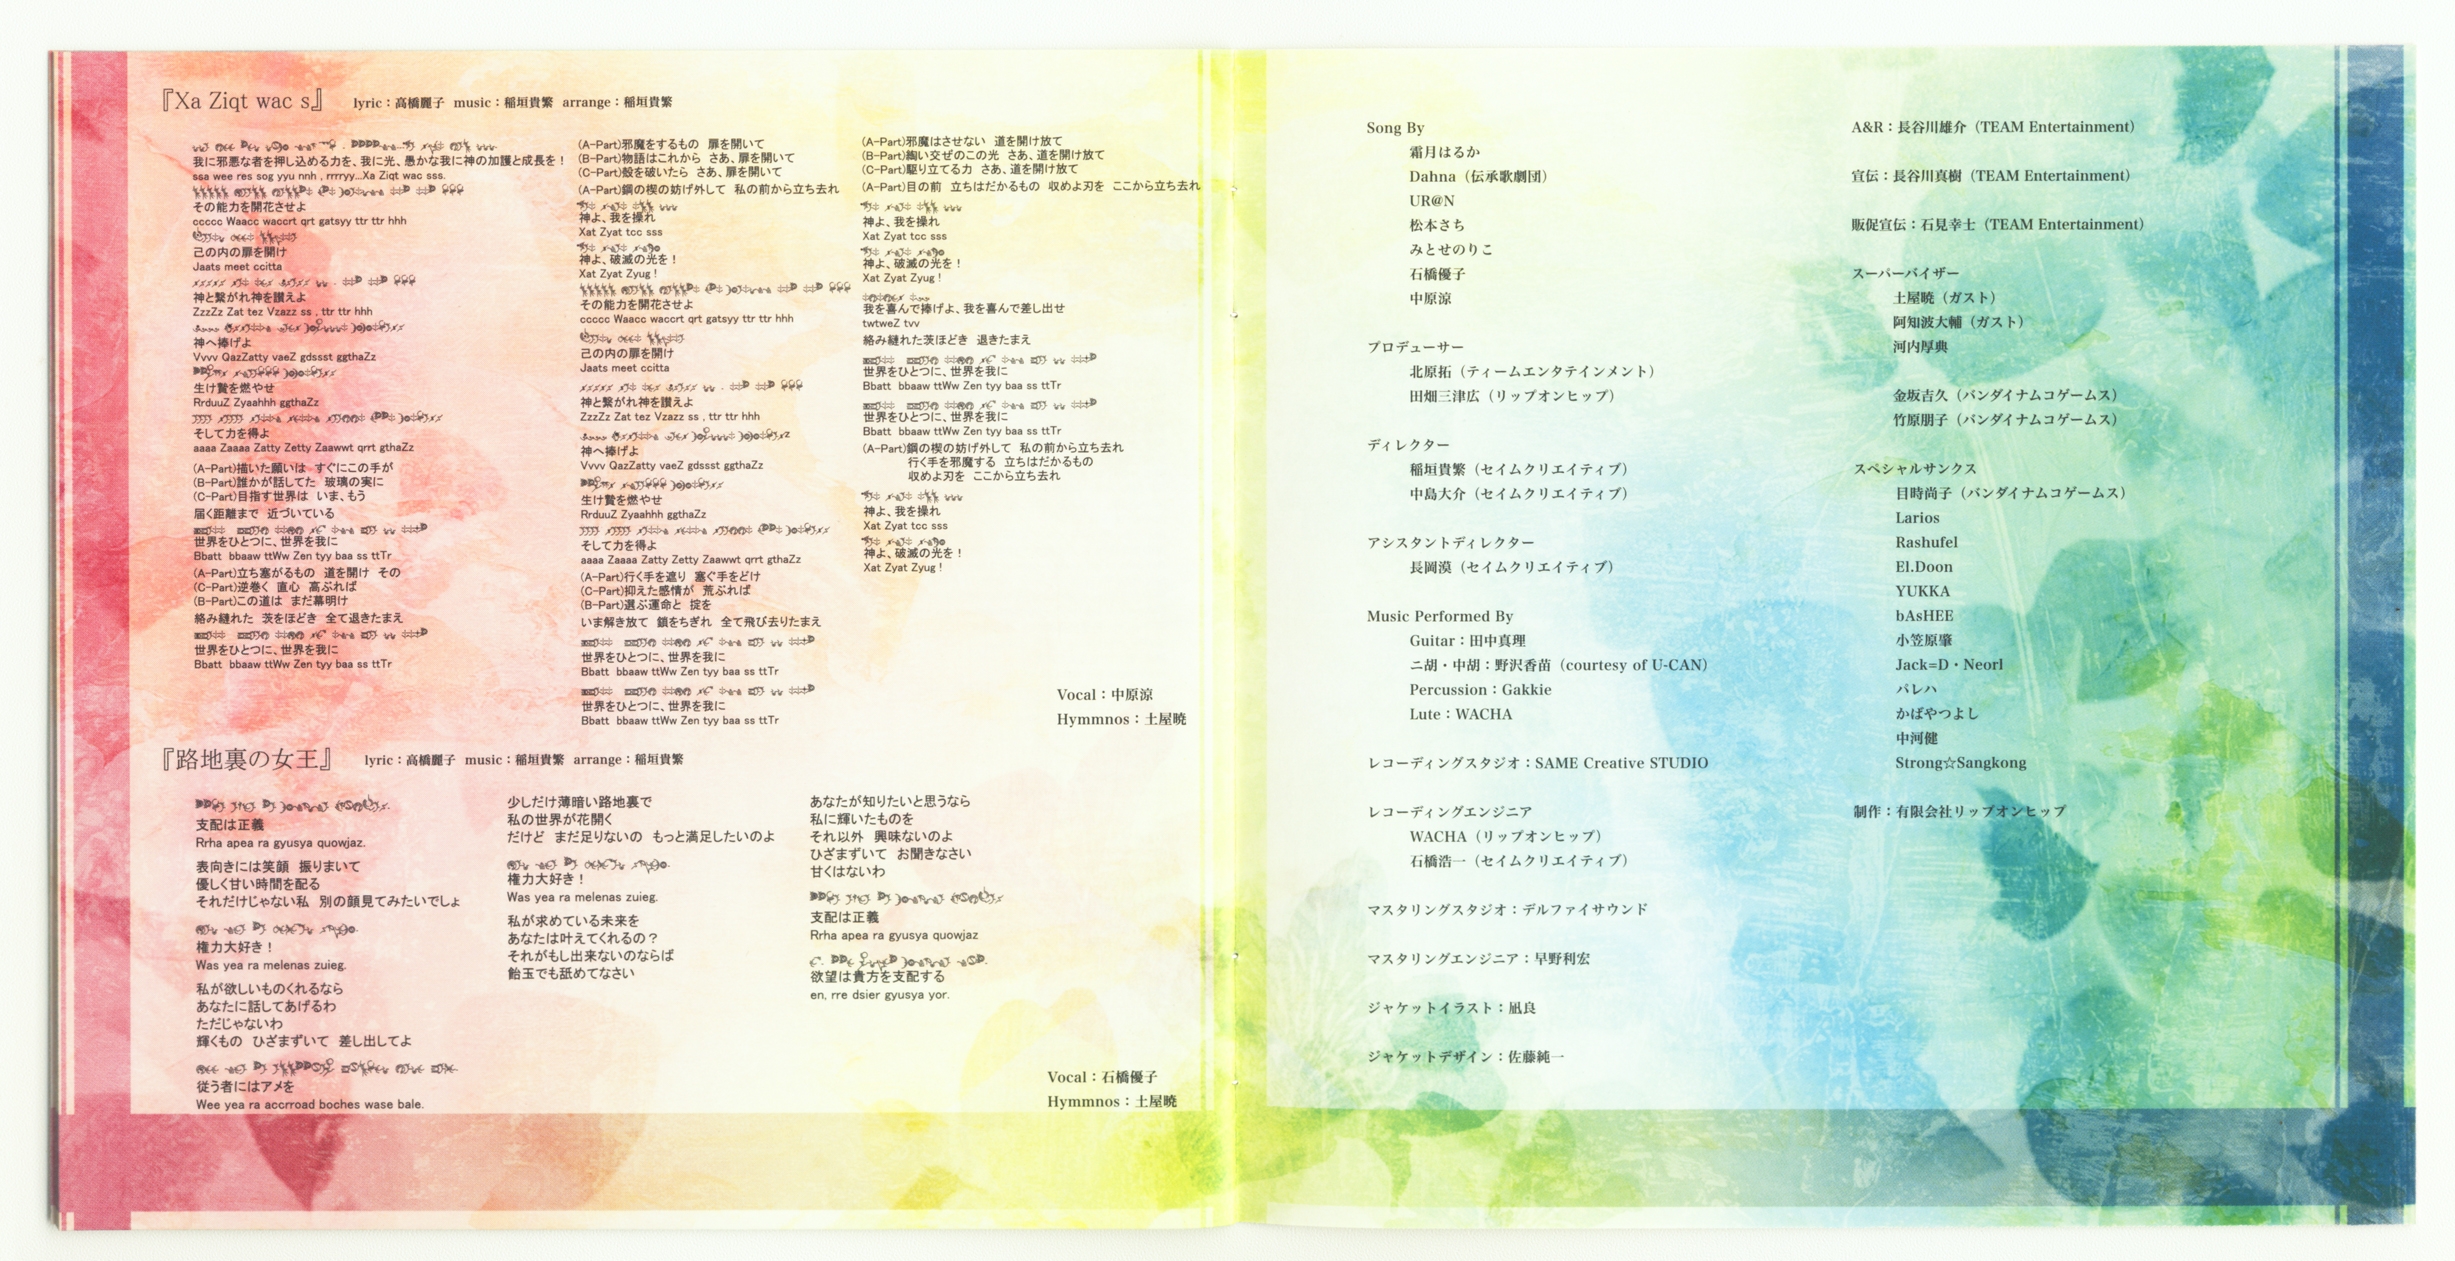 『Xa Ziqt wac s』 lyric：高橋麗子 music：稲垣貴繁 arrange：稲垣貴繁
我に邪悪な者を押し込める力を、我に光、愚かな我に神の加護と成長を！
ssa wee res sog yyu nnh , rrrryy...Xa Ziqt wac sss.
その能力を開花させよ
ccccc Waacc waccrt qrt gatsyy ttr ttr hhh
己の内の扉を開け
Jaats meet ccitta
神と繋がれ神を讃えよ
ZzzZz Zat tez Vzazz ss , ttr ttr hhh
神へ捧げよ
Vvvv QazZatty vaeZ gdssst ggthaZz
生け贄を燃やせ
RrduuZ Zyaahhh ggthaZz
そして力を得よ
aaaa Zaaaa Zatty Zetty Zaawwt qrrt gthaZz
(A-Part)描いた願いは すぐにこの手が
(B-Part)誰かが話してた 玻璃の実に
(C-Part)目指す世界は いま、もう
届く距離まで 近づいている
世界をひとつに、世界を我に
Bbatt bbaaw ttWw Zen tyy baa ss ttTr
(A-Part)立ち塞がるもの 道を開け その
(C-Part)逆巻く 直心 高ぶれば
(B-Part)この道は まだ幕明け
絡み縫れた 茨をほどき 全て退きたまえ
世界をひとつに、世界を我に
Bbatt bbaaw ttWw Zen tyy baa ss ttTr
(A-Part)邪魔をするもの 扉を開いて
(B-Part)物語はこれから さあ、扉を開いて
(C-Part)殻を破いたら さあ、扉を開いて
(A-Part)鋼の楔の妨げ外して 私の前から立ち去れ
神よ、我を操れ
Xat Zyat tcc sss
神よ、破滅の光を！
Xat Zyat Zyug !
その能力を開花させよ
ccccc Waacc waccrt qrt gatsyy ttr ttr hhh
己の内の扉を開け
Jaats meet ccitta
神と繋がれ神を讃えよ
ZzzZz Zat tez Vzazz ss , ttr ttr hhh
神へ捧げよ
Vvvv QazZatty vaeZ gdssst ggthaZz
生け贄を燃やせ
RrduuZ Zyaahhh ggthaZz
そして力を得よ
aaaa Zaaaa Zatty Zetty Zaawwt qrrt gthaZz
(A-Part)行く手を遮り 塞ぐ手をどけ
(C-Part)抑えた感情が 荒ぶれば
(B-Part)選ぶ運命と 掟を
いま解き放て 鎖をちぎれ 全て飛び去りたまえ
世界をひとつに、世界を我に
Bbatt bbaaw ttWw Zen tyy baa ss ttTr
世界をひとつに、世界を我に
Bbatt bbaaw ttWw Zen tyy baa ss ttTr
(A-Part)邪魔はさせない 道を開け放て
(B-Part)綯い交ぜのこの光 さあ、道を開け放て
(C-Part)駆り立てる力 さあ、道を開け放て
(A-Part)目の前 立ちはだかるもの 収めよ刃を ここから立ち去れ
神よ、我を操れ
Xat Zyat tcc sss
神よ、破滅の光を！
Xat Zyat Zyug !
我を喜んで捧げよ、我を喜んで差し出せ
twtweZ tvv
絡み縫れた茨ほどき 退きたまえ
世界をひとつに、世界を我に
Bbatt bbaaw ttWw Zen tyy baa ss ttTr
世界をひとつに、世界を我に
Bbatt bbaaw ttWw Zen tyy baa ss ttTr
(A-Part)鋼の楔の妨げ外して 私の前から立ち去れ
行く手を邪魔する 立ちはだかるもの
収めよ刃を ここから立ち去れ
神よ、我を操れ
Xat Zyat tcc sss
神よ、破滅の光を！
Xat Zyat Zyug !
Vocal：中原涼
Hymmnos：土屋暁
『路地裏の女王』 lyric：高橋麗子 music：稲垣貴繁 arrange：稲垣貴繁
支配は正義
Rrha apea ra gyusya quowjaz.
表向きには笑顔 振りまいて
優しく甘い時間を配る
それだけじゃない私 別の顔見てみたいでしょ
権力大好き！
Was yea ra melenas zuieg.
私が欲しいものくれるなら
あなたに話してあげるわ
ただじゃないわ
輝くもの ひざまずいて 差し出してよ
従う者にはアメを
Wee yea ra accrroad boches wase bale.
少しだけ薄暗い路地裏で
私の世界が花開く
だけど まだ足りないの もっと満足したいのよ
権力大好き！
Was yea ra melenas zuieg.
私が求めている未来を
あなたは叶えてくれるの？
それがもし出来ないのならば
飴玉でも舐めてなさい
あなたが知りたいと思うなら
私に輝いたものを
それ以外 興味ないのよ
ひざまずいて お聞きなさい
甘くはないわ
支配は正義
Rrha apea ra gyusya quowjaz
欲望は貴方を支配する
en, rre dsier gyusya yor.
Vocal：石橋優子
Hymmnos：土屋暁
Song By
霜月はるか
Dahna（伝承歌劇団）
UR@N
松本さち
みとせのりこ
石橋優子
中原涼
プロデューサー
北原拓（ティームエンタテインメント）
田畑三津広（リップオンヒップ）
ディレクター
稲垣貴繁（セイムクリエイティブ）
中島大介（セイムクリエイティブ）
アシスタントディレクター
長岡漠（セイムクリエイティブ）
Music Performed By
Guitar：田中真理
二胡・中胡：野沢香苗（courtesy of U-CAN）
Percussion：Gakkie
Lute：WACHA
レコーディングスタジオ：SAME Creative STUDIO
レコーディングエンジニア
WACHA（リップオンヒップ）
石橋浩一（セイムクリエイティブ）
マスタリングスタジオ：デルファイサウンド
マスタリングエンジニア：早野利宏
ジャケットイラスト：凪良
ジャケットデザイン：佐藤純一
A&R：長谷川雄介（TEAM Entertainment）
宣伝：長谷川真樹（TEAM Entertainment）
販促宣伝：石見幸士（TEAM Entertainment）
スーパーバイザー
土屋暁（ガスト）
阿知波大輔（ガスト）
河内厚典
金坂吉久（バンダイナムコゲームス）
竹原朋子（バンダイナムコゲームス）
スペシャルサンクス
目時尚子（バンダイナムコゲームス）
Larios
Rashufel
El.Doon
YUKKA
bAsHEE
小笠原肇
Jack=D・Neorl
パレハ
かばやつよし
中河健
Strong☆Sangkong
制作：有限会社リップオンヒップ